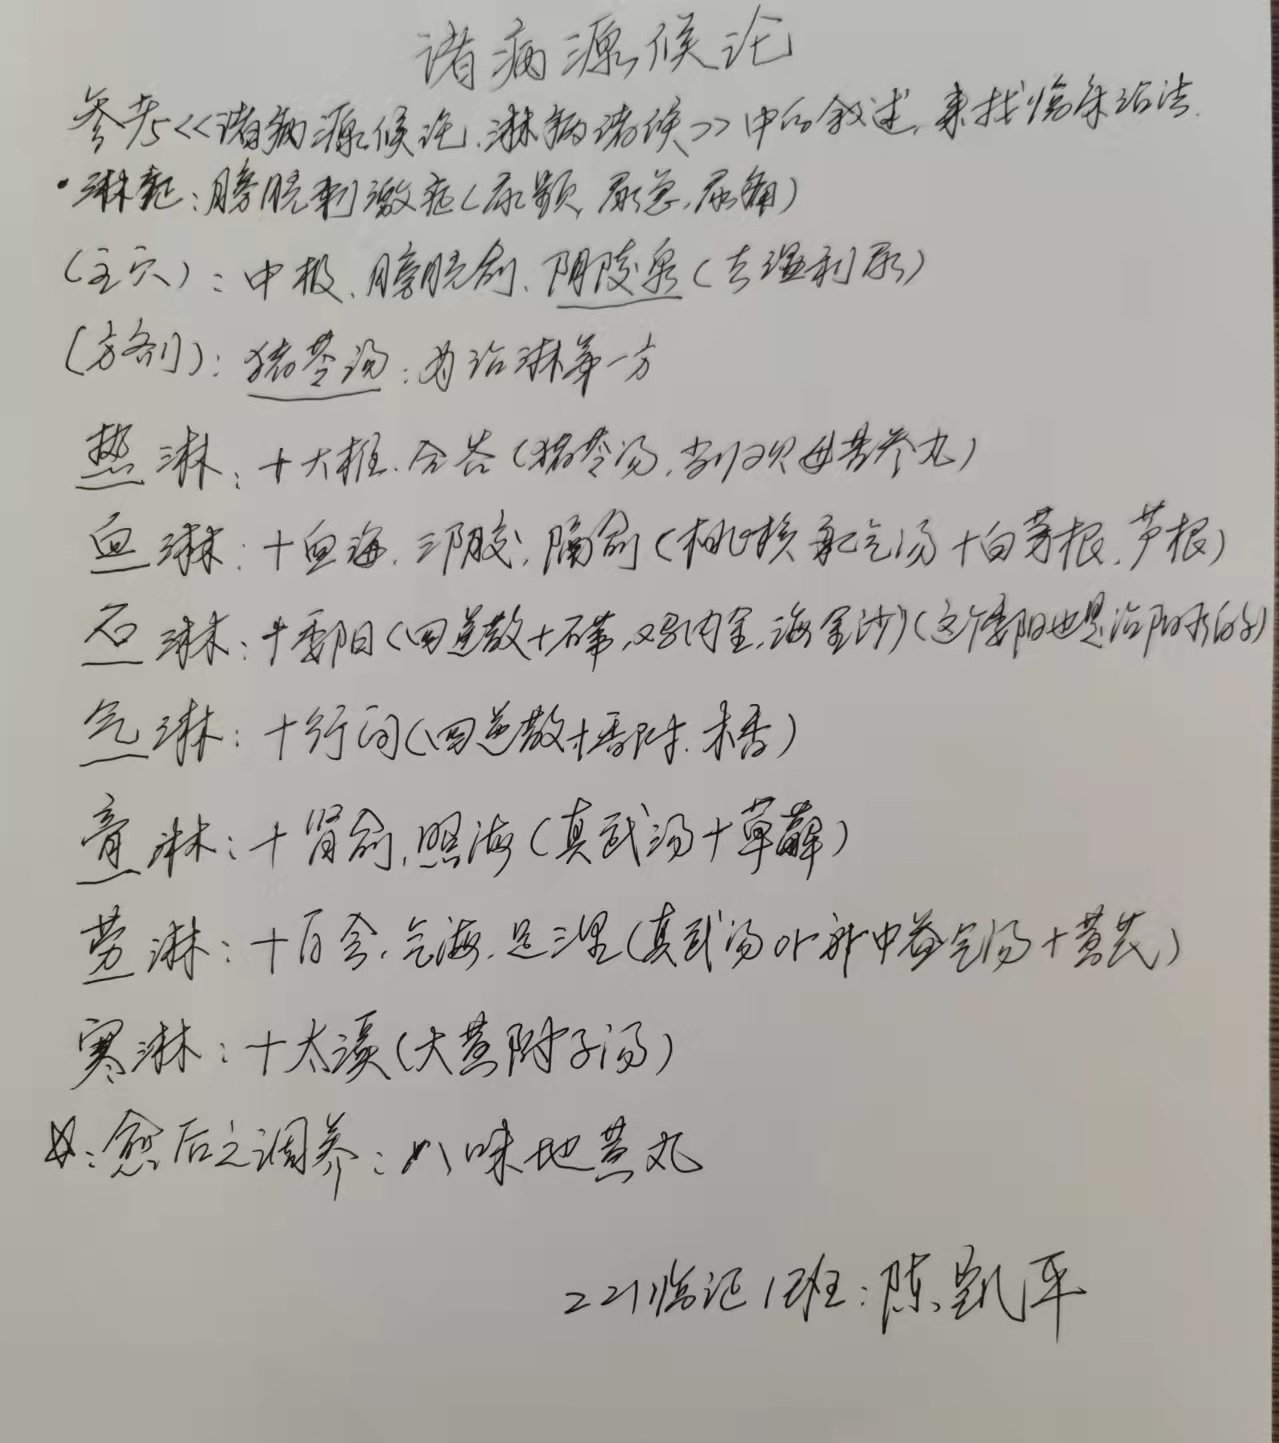 诸病源候论
参考<<诸病源候论.淋病诸候>>中的叙述,来找临床治法.
·淋証:膀胱刺激症(尿频,尿急,尿痛)
(主穴):中极、膀胱俞、阴陵泉(去湿利尿)
(方剂):猪苓汤:为治淋第一方
热淋:+大椎.合谷(猪苓汤,当归贝母苦参丸)
血淋:+血海.三阴交,隔俞(桃核承气汤+白茅根.芦根)
石淋:+委阳(四逆散+石苇,鸡内金,海金沙)(这个委阳也是治阳水的)
气淋:+行间(四逆散+香附.木香)
膏淋:+肾俞,照海(真武汤+草薢)
劳淋:+百会.气海.足三里(真武汤or补中益气汤+黄芪)
寒淋:+太溪(大黄附子汤)
愈后之调养:八味地黄丸
221临记1班:陈凯平